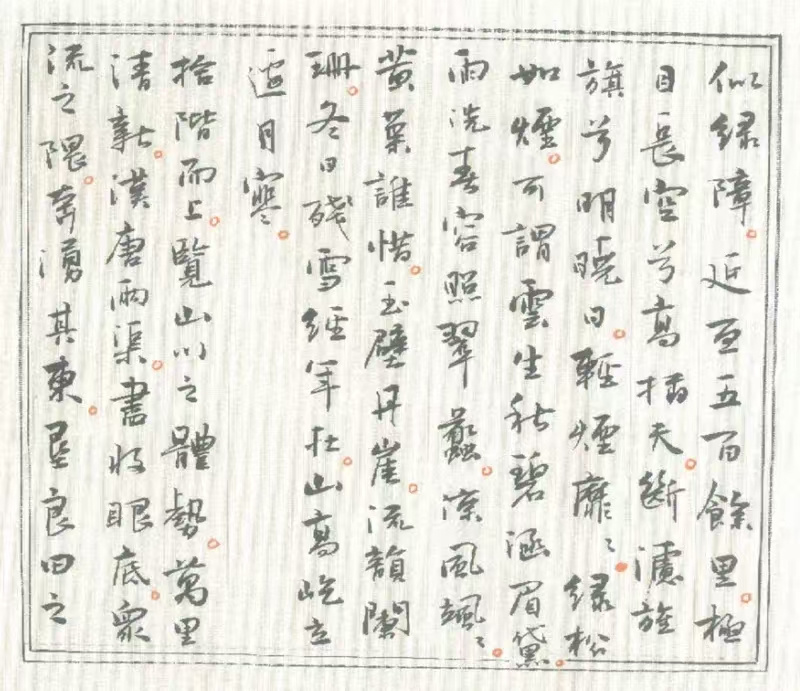 似綠障。延亙五百餘里。極
目長空兮高插天。斷濾旌
旗兮明曉日。輕煙靡〻。綠松
如煙。可謂雲生秋碧涵眉黛。
雨洗春容照翠蠡。涼風颯〻。
黃葉誰惜。玉壁丹崖。流韻闌
珊。冬日殘雪經年在。山高屹立
月寒。
拾階而上。覽山川之體勢。萬里
清新。漢唐兩渠。盡收眼底。眾
流之隈。奔湧其東。墾良田之